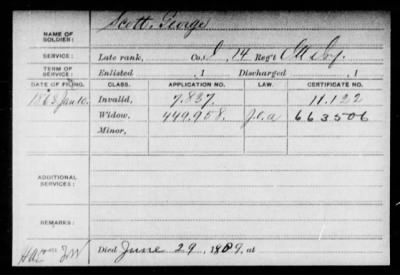 NAME OF SOLDIER: Scott, George
SERVICE: Late rank, Co. I, 74 Reg't Inf.
TERM OF SERVICE: Enlisted , 1 Discharged , 1
DATE OF FILING. CLASS. APPLICATION NO. LAW. CERTIFICATE NO.
1863 Jan 10. Invalid, 7.837. 11.122
Widow, 449.958. 663506
Minor,
ADDITIONAL SERVICES:
REMARKS:
Died June 29, 1889, at